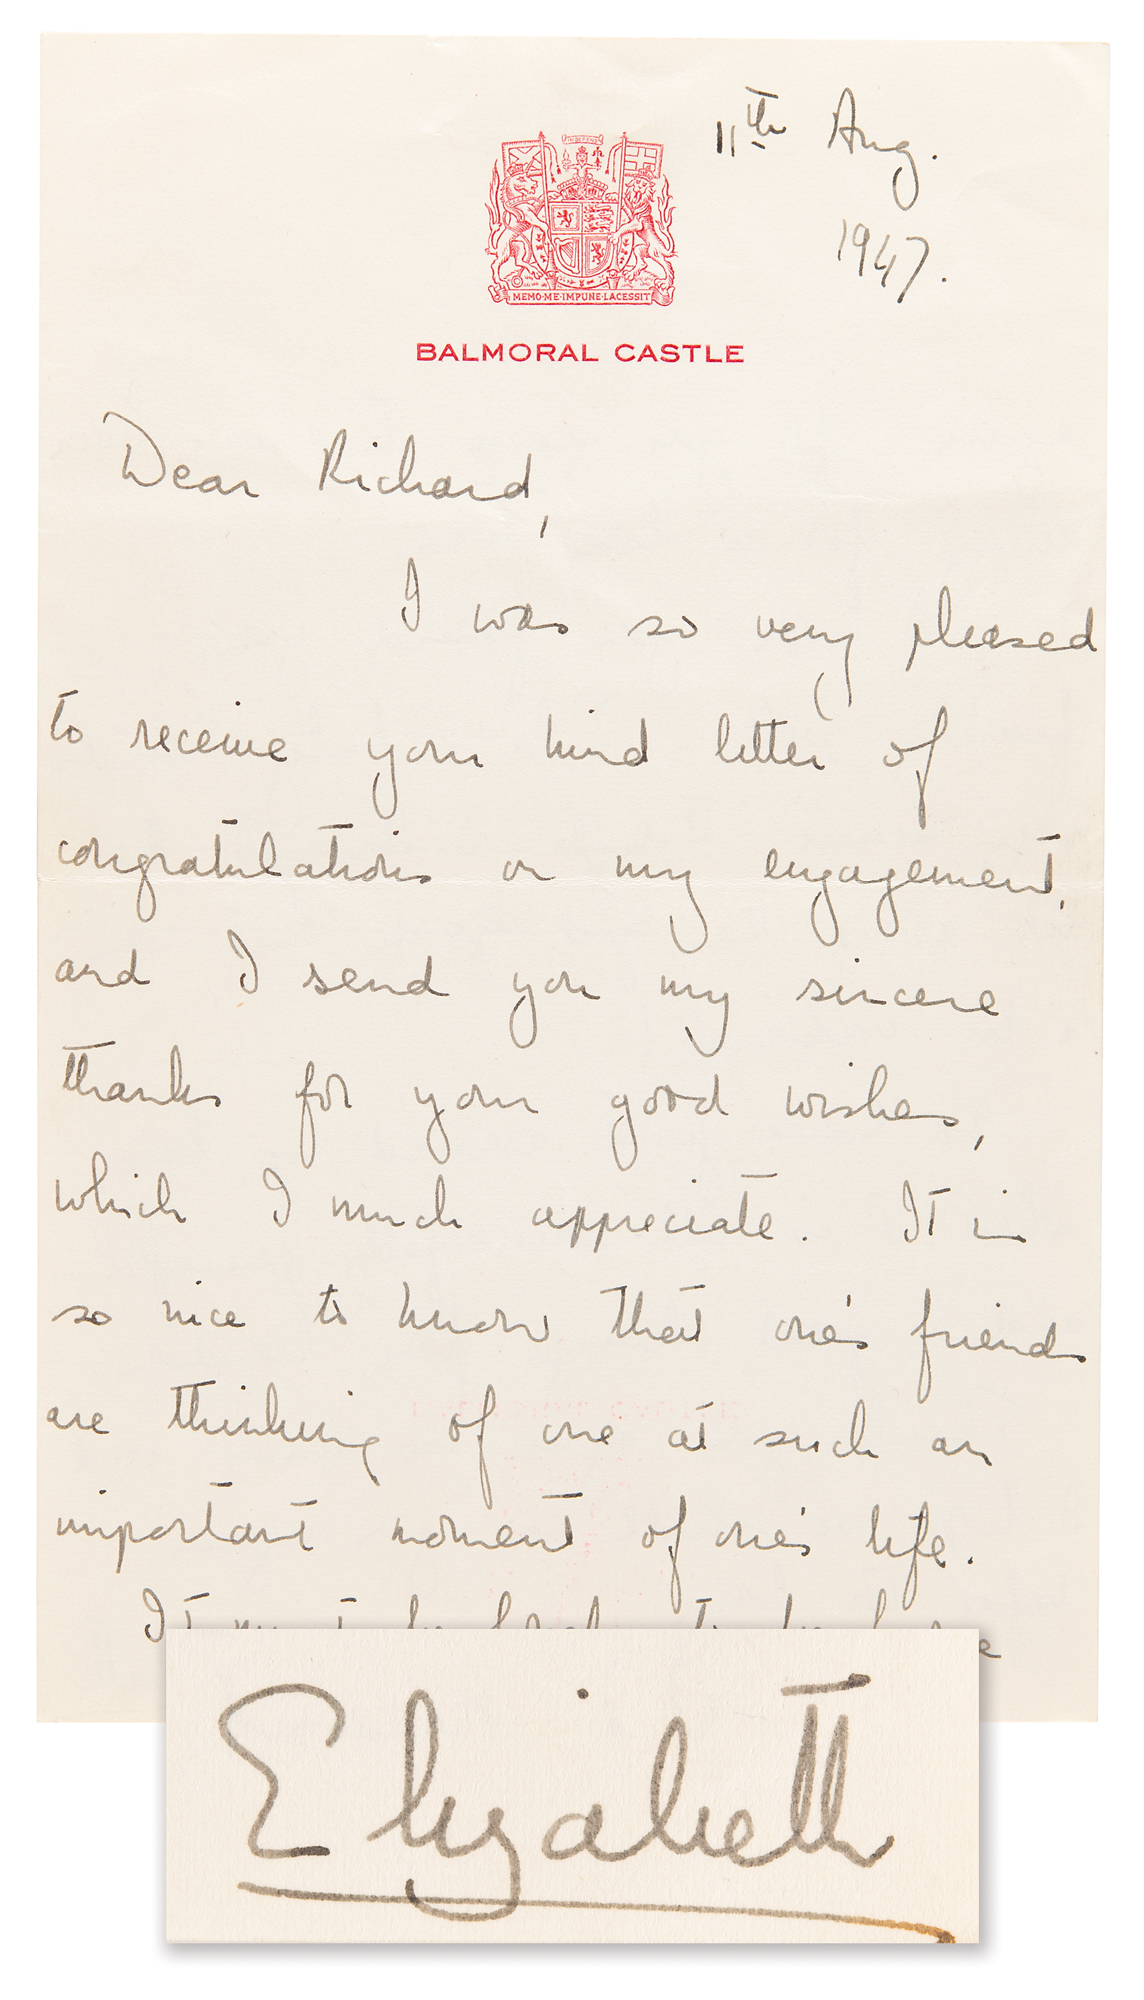 11th Aug.
1947.
MEMO·ME·IMPUNE·LACESSIT
BALMORAL CASTLE
Dear Richard,
I was so very pleased
to receive your kind letter of
congratulations on my engagement,
and I send you my sincere
thanks for your good wishes,
which I much appreciate. It is
so nice to know that one's friends
are thinking of one at such an
important moment of one's life.
It must be
Elizabeth